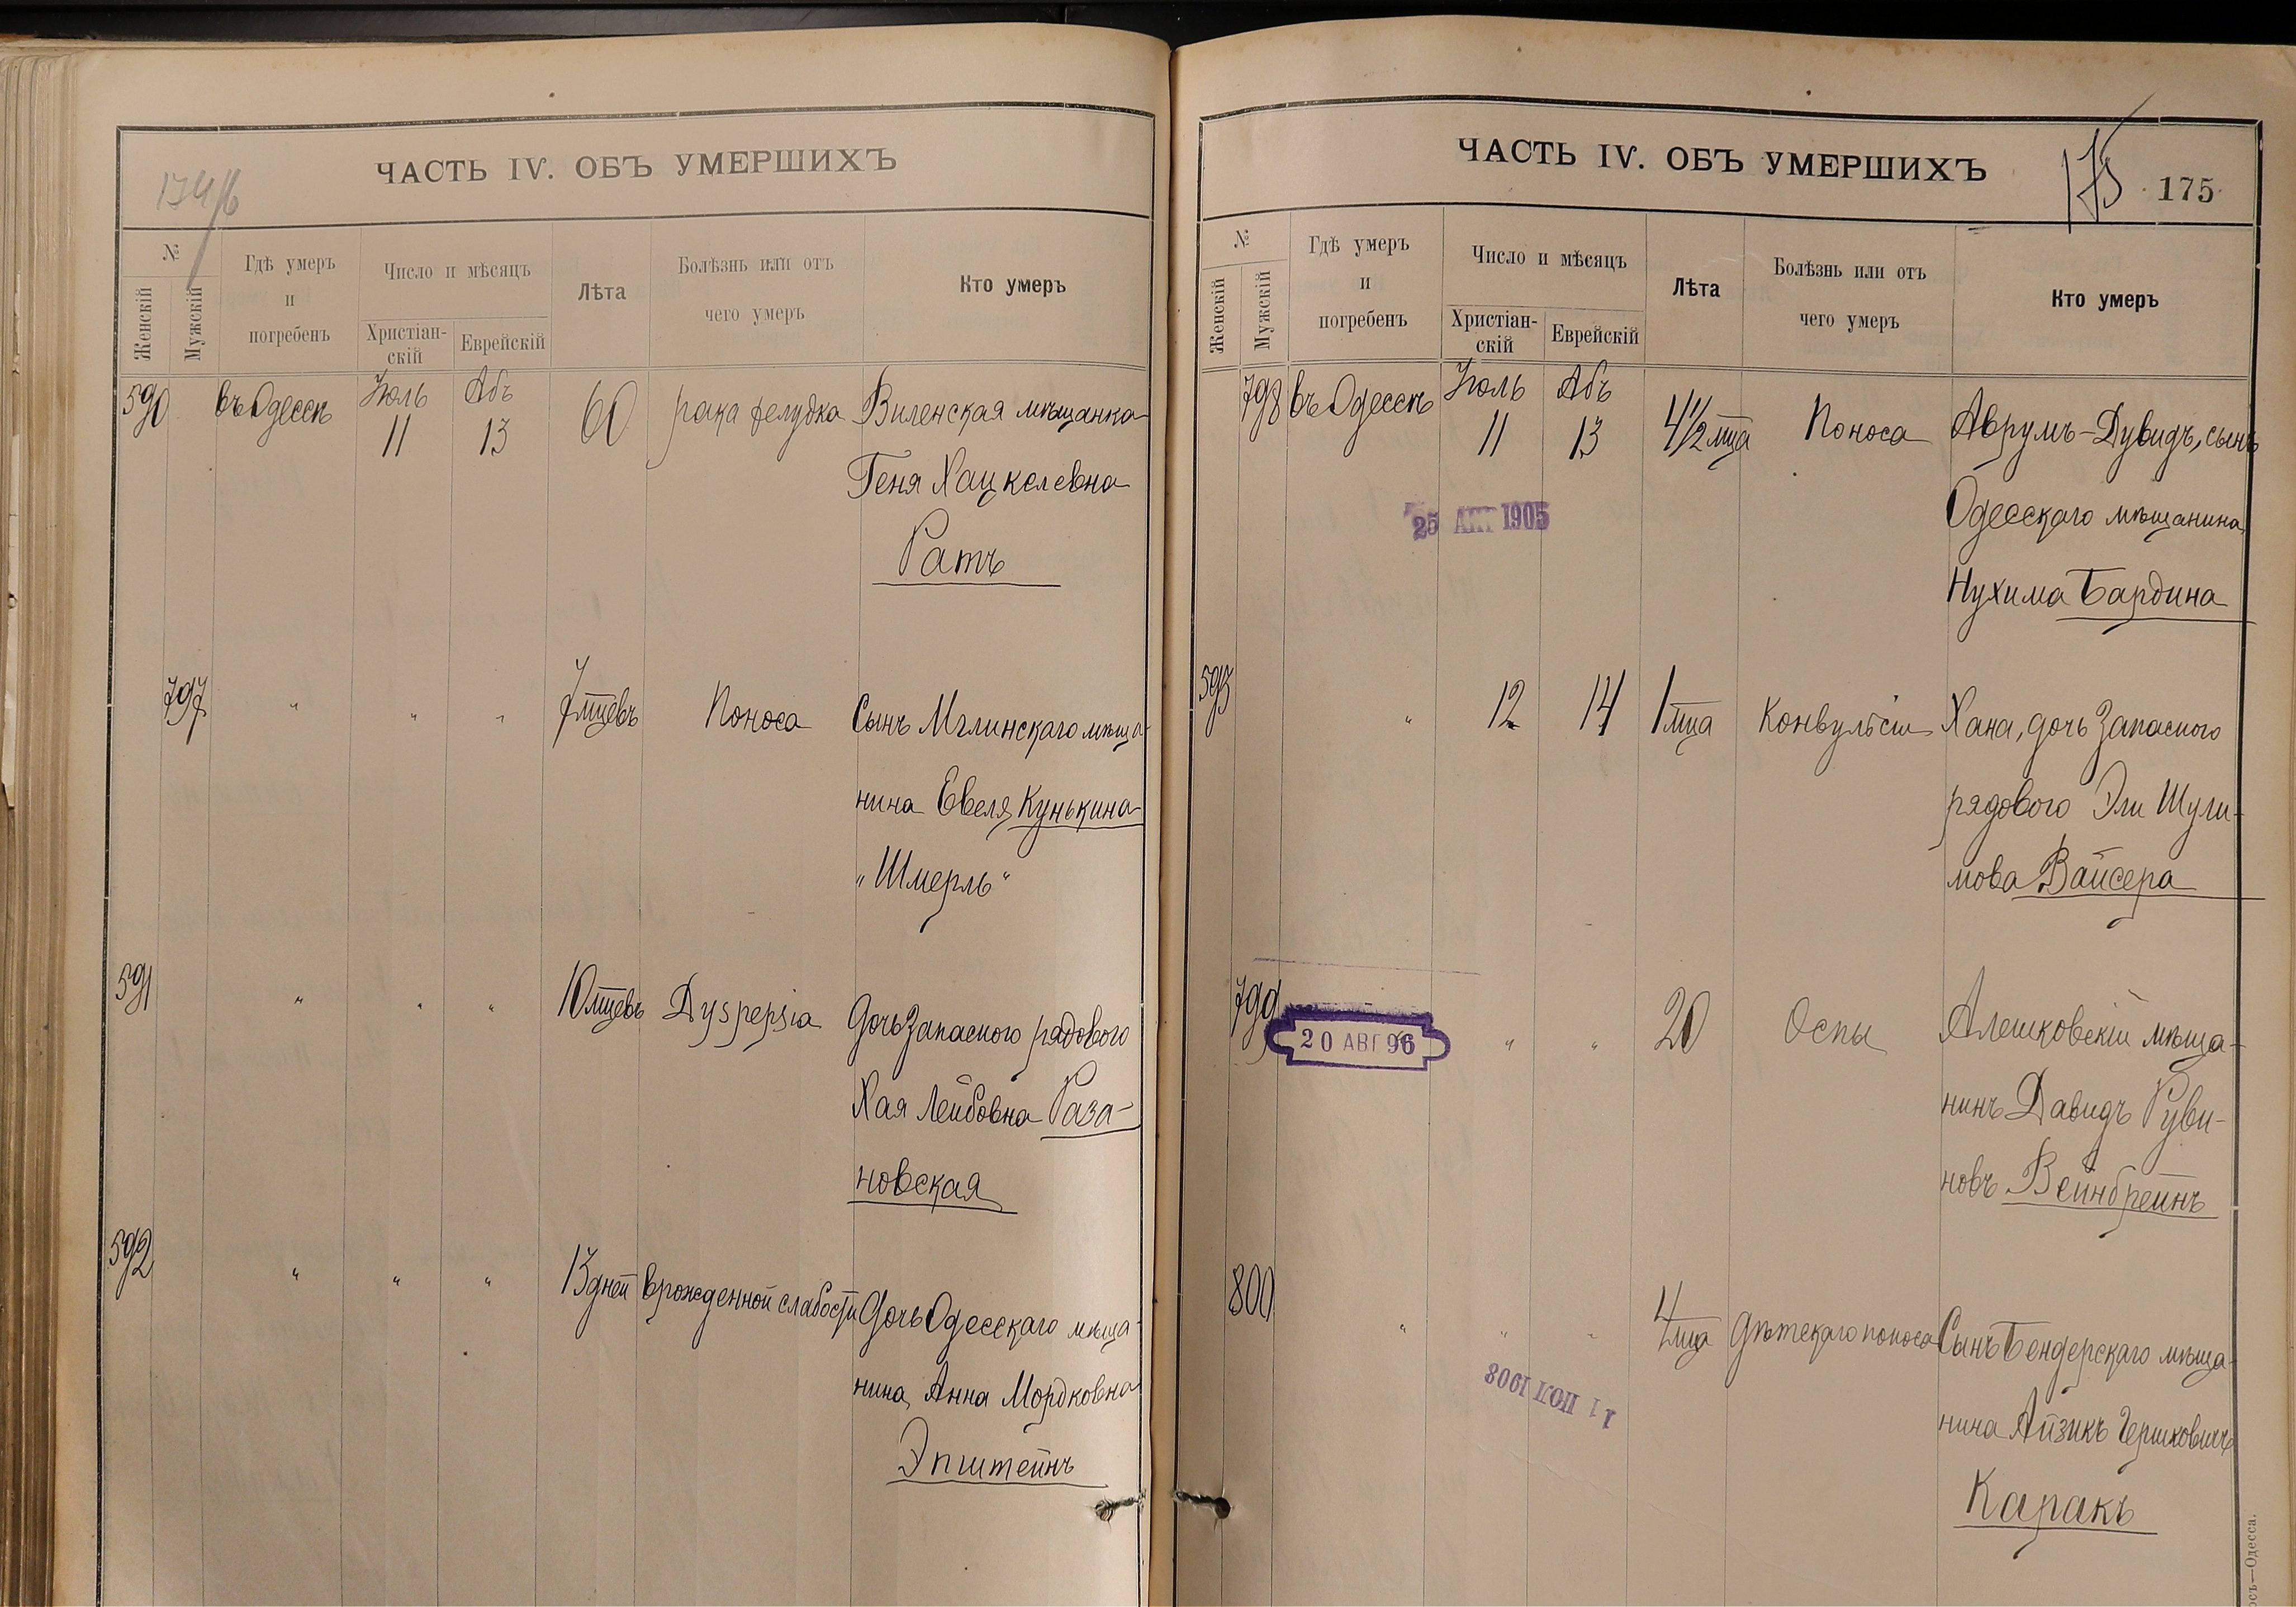 ЧАСТЬ IV. ОБЪ УМЕРШИХЪ
№
Женскій
Мужскій
Гдѣ умеръ
и
погребенъ
Число и мѣсяцъ
Христіан-
скій
Еврейскій
Лѣта
Болѣзнь или отъ
чего умеръ
Кто умеръ
590 въ Одессѣ Іюль 11 Абъ 13 60 рака желудка Виленская мѣщанка
Геня Хацкелевна
Ратъ
797 " " " 7 мцевъ Поноса Сынъ Мглинскаго мѣща-
нина Евеля Кунькина
"Шмерль"
591 " " " 10 мцевъ Dyspepsia Дочь запасного рядового
Хая Лейбовна Раза-
новская
592 " " " 13 дней врожденной слабости Дочь Одесскаго мѣща-
нина, Анна Мордковна
Эпштейнъ
ЧАСТЬ IV. ОБЪ УМЕРШИХЪ
175 175
№
Женскій
Мужскій
Гдѣ умеръ
и
погребенъ
Число и мѣсяцъ
Христіан-
скій
Еврейскій
Лѣта
Болѣзнь или отъ
чего умеръ
Кто умеръ
798 въ Одессѣ Іюль 11 Абъ 13 4 1/2 мца Поноса Аврумъ-Дувидъ, сынъ
Одесскаго мѣщанина
Нухима Бардина
25 1905
593 " 12 14 1 мца Конвульсіи Хана, дочь запасного
рядового Эли Шули-
мова Вайсера
799 " " 20 Оспы Алешковскій мѣща-
нинъ Давидъ Руви-
новъ Вейнбрейнъ
20 АВГ 96
800 " " " 4 мца Дѣтскаго поноса Сынъ Бендерскаго мѣща-
нина Айзикъ Гершковичъ
Каракъ
11 1908
—Одесса.